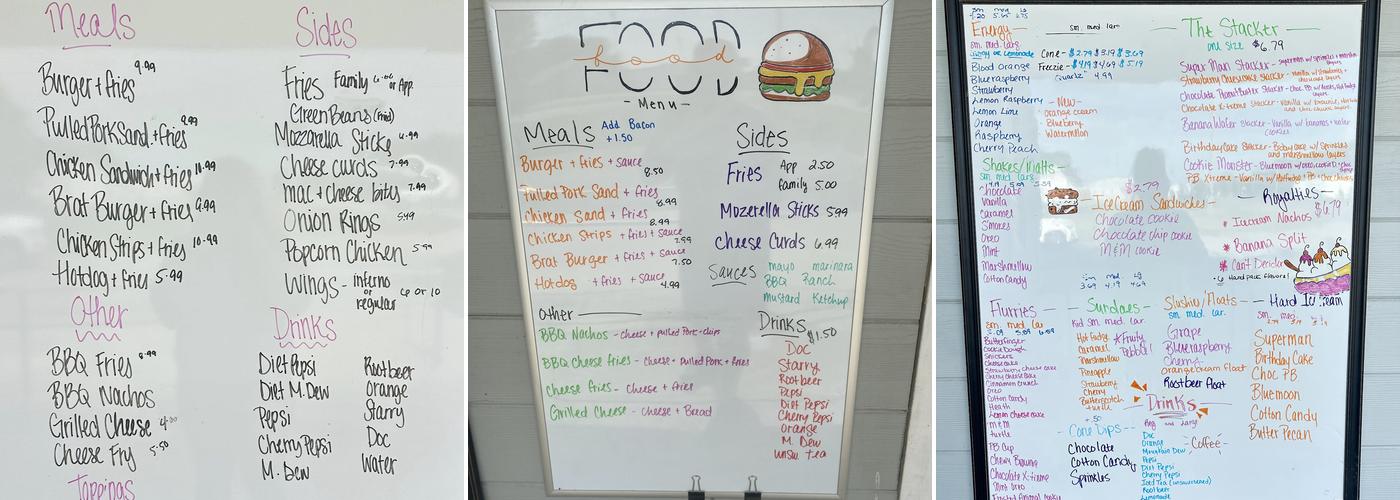 Meals
Burger + fries 9.99
Pulled Pork Sand. + fries 9.99
Chicken Sandwich + fries 10.99
Brat Burger + fries 9.99
Chicken Strips + fries 10.99
Hotdog + fries 5.99
Other
BBQ Fries 8.99
BBQ Nachos
Grilled Cheese
Cheese Fry 5.50
Toppings
Sides
Fries Family or App.
Green Beans (fried)
Mozzarella Sticks 6.99
Cheese curds 7.99
mac + cheese bites 7.99
Onion Rings 5.49
Popcorn Chicken 5.99
Wings - inferno
or
regular 6 or 10
Drinks
Diet Pepsi
Diet M.Dew
Pepsi
Cherry Pepsi
M. Dew
Rootbeer
Orange
Starry
Doc
Water
FOOD
food
- Menu -
Meals Add Bacon
+1.50
Burger + fries + sauce
8.50
Pulled Pork Sand + fries
8.99
Chicken Sand + fries
8.99
Chicken Strips + fries + sauce
7.99
Brat Burger + fries + sauce
7.50
Hotdog + fries + sauce
4.99
Other
BBQ Nachos - cheese + pulled Pork + chips
BBQ Cheese fries - cheese + pulled Pork + fries
Cheese fries - cheese + fries
Grilled Cheese - cheese + Bread
Sides
Fries App 2.50
family 5.00
Mozerella Sticks 5.99
Cheese Curds 6.99
Sauces mayo marinara
BBQ Ranch
mustard Ketchup
Drinks $1.50
Doc
Starry
Rootbeer
Pepsi
Diet Pepsi
Cherry Pepsi
Orange
M. Dew
unsw. tea
Energy
sm. med. lar.
Blood Orange
Blueraspberry
Strawberry
Lemon Raspberry
Lemon Lime
Orange
Raspberry
Cherry Peach
sm. med. lar
Cone - $2.79 $3.19 $3.69
Freezie - $4.19 $4.69 $5.19
"Quartz" 4.99
- New -
orange cream
Blueberry
Watermelon
The Stacker
one size $6.79
Super Man Stacker -
Strawberry Cheesecake Stacker -
Chocolate Peanut Butter Stacker -
Chocolate X-treme Stacker -
Banana Wafer Stacker - Vanilla w/ bananas + wafer
cookies
Birthday Cake Stacker -
and marshmallow layers
Cookie Monster -
PB Xtreme -
Shakes/Malts
sm. med. lar.
Chocolate
Vanilla
Caramel
S'mores
Oreo
Mint
Marshmallow
Cotton Candy
$2.79
Ice Cream Sandwiches
Chocolate cookie
Chocolate chip cookie
M&M cookie
Royalties
* Icecream Nachos $6.79
* Banana Split
* Can't Decide
Flurries
sm. med. lar
Butterfinger
Cookie Dough
Snickers
Cheesecake
Strawberry cheesecake
Cherry cheesecake
Cinnamon Crunch
Oreo
Cotton Candy
Heath
Lemon cheesecake
M&M
turtle
PB Cup
Chewy Brownie
Chocolate X-treme
Mint Oreo
Sundaes
Kid sm. med. lar.
Hot Fudge
Caramel
Marshmallow
Pineapple
Strawberry
Cherry
Butterscotch
turtle
* Fruity
Pebble!
Cone Dips
Chocolate
Cotton Candy
Sprinkles
Slushies/Floats
sm. med. lar.
Grape
Blueraspberry
Cherry
Orange cream Float
Rootbeer float
- Drinks -
Reg and Large
Doc
Orange
Mountain Dew
Pepsi
Diet Pepsi
Cherry Pepsi
Iced Tea (unsweetened)
Rootbeer
Lemonade
- Coffee -
- Hard Ice Cream
Superman
Birthday Cake
Choc PB
Bluemoon
Cotton Candy
Butter Pecan